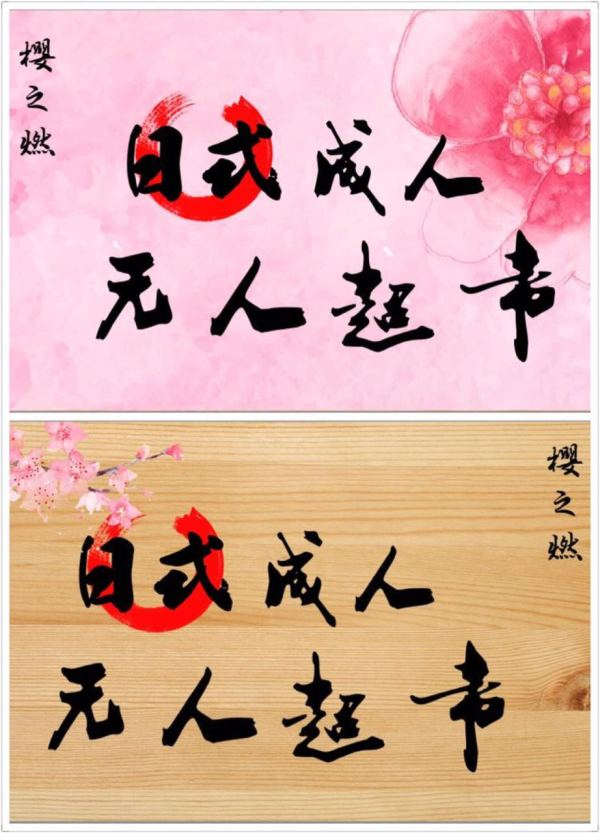 樱之燃
日式成人
无人超市
樱之燃
日式成人
无人超市